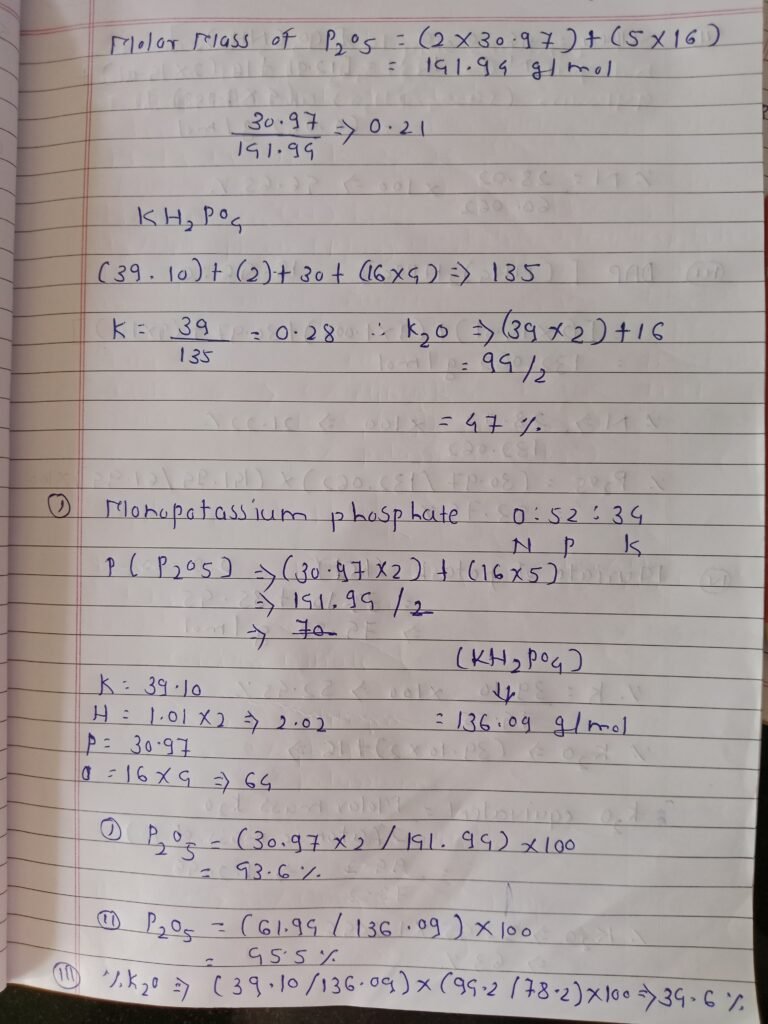 Molar Mass of P₂O₅ = (2 × 30.97) + (5 × 16)
= 141.94 g/mol
30.97
141.94 ⇒ 0.21
KH₂PO₄
(39.10) + (2) + 30 + (16×4) ⇒ 135
K = 39/135 = 0.28 ∴ K₂O ⇒ (39 × 2) + 16
= 94/2
= 47 %
① Monopotassium phosphate 0 : 52 : 34
N P K
P ( P₂O₅ ) ⇒ (30.97 × 2) + (16 × 5)
⇒ 141.94 / 2
⇒ 70
(KH₂PO₄)
K = 39.10 ↓
H = 1.01 × 2 ⇒ 2.02 = 136.09 g/mol
P = 30.97
O = 16 × 4 ⇒ 64
① P₂O₅ = (30.97 × 2 / 141.94) × 100
= 43.6 %
⑪ P₂O₅ = (61.94 / 136.09) × 100
= 45.5 %
⑪⑪ % K₂O ⇒ (39.10/136.09) × (94.2 / 78.2) × 100 ⇒ 34.6 %